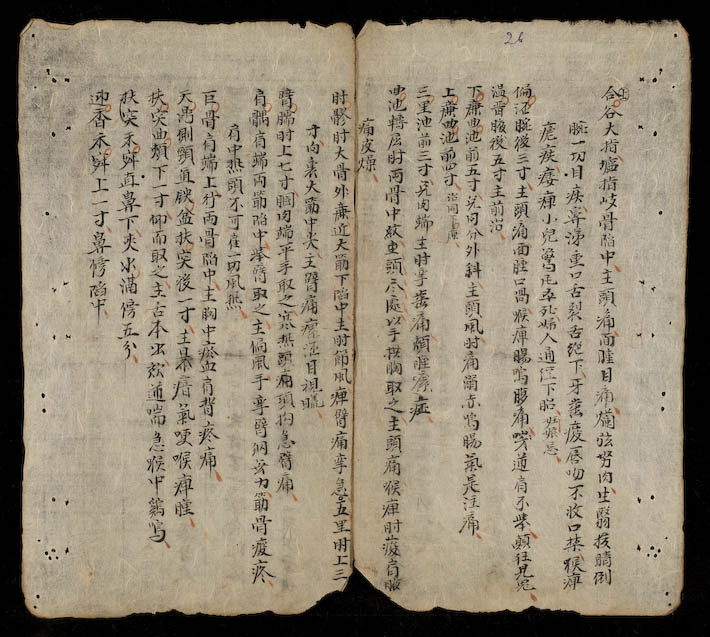 26
合谷大指次指岐骨陷中主頭痛面腫目痛爛弦努肉生翳拔睛倒
腕一切目疾鼻涕重口舌裂舌強下牙齒痠唇吻不收口禁喉痺
瘧疾痿痺小兒驚風卒死婦人通經下胎
偏歷腕後三寸主頭痛面腫口喎喉痺腸鳴腹痛
溫留腕後五寸主前治
下廉曲池前五寸兌肉分外斜主頭風肘痛溺赤鳴腸氣走注痛
上廉曲池前四寸治同下廉
三里池前三寸兌肉端主肘攣齒痛頰腫瘰癧
曲池轉屈肘兩骨中紋頭盡處以手拱胸取之主頭痛喉痺肘痠肩
痛皮燥
肘髎肘大骨外廉近大筋下陷中主肘節風痺臂痛攣急五里肘上三
寸向裏大筋中央主臂痛瘰癧目視
臂臑肘上七寸胸肉端平手取之寒熱頭痛項拘急臂痛
肩髃肩端兩筋陷中舉臂取之主偏風手攣臂細無力筋骨痠疼
肩中熱頭不可顧一切風熱
巨骨肩端上行兩骨陷中主胸中瘀血肩背疼痛
天鼎側頸直缺盆扶突後一寸主暴瘖氣哽喉痺腫
扶突曲頰下一寸仰而取之主舌本出欬逆喘急喉中鷄鳴
禾舜直鼻下夾水溝傍五分
迎香禾舜上一寸鼻傍陷中